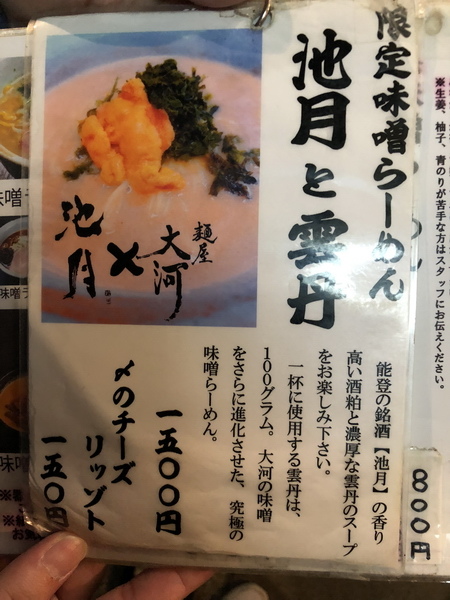 限定味噌らーめん
池月と雲丹
麺屋
大河
×
池月
能登の銘酒【池月】の香り
高い酒粕と濃厚な雲丹のスープ
をお楽しみ下さい。
一杯に使用する雲丹は、
100グラム。大河の味噌
をさらに進化させた、究極の
味噌らーめん。
一五〇〇円
〆のチーズ
リゾット
一五〇円
※生姜、柚子、青のりが苦手な方はスタッフにお伝えください。
800円
味噌